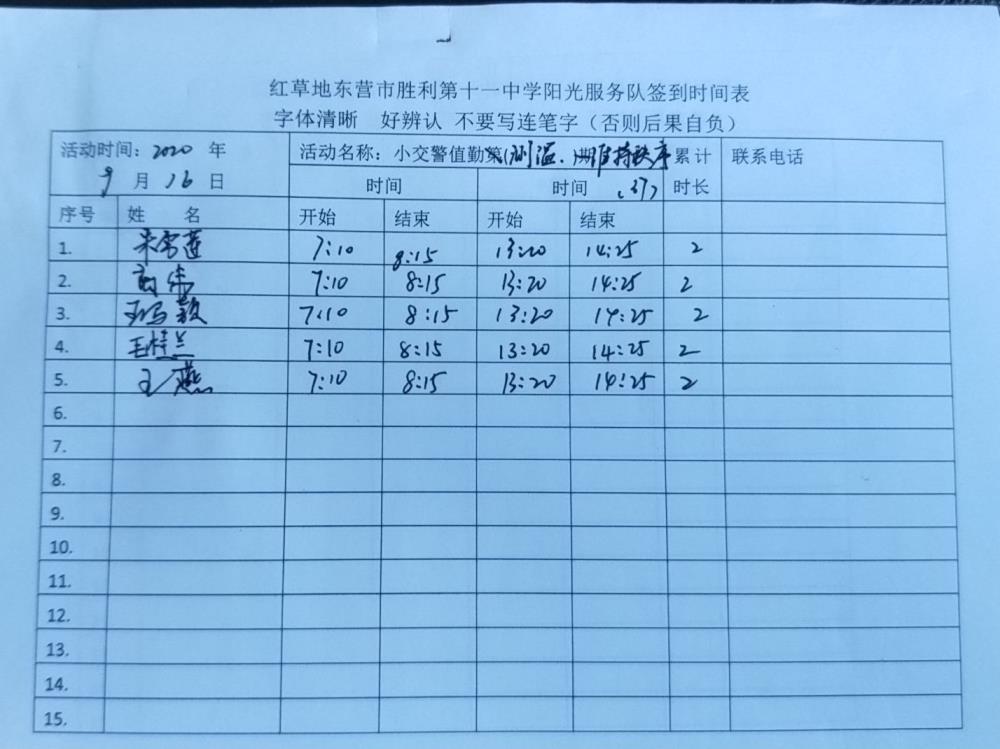 红草地东营市胜利第十一中学阳光服务队签到时间表
字体清晰 好辨认 不要写连笔字（否则后果自负）
活动时间：2020 年
9 月 16 日
活动名称：小交警值勤第(测温、)期维持秩序
累计时长
联系电话
时间 时间 (37)
序号 姓 名 开始 结束 开始 结束
1. 7:10 8:15 13:20 14:25 2
2. 7:10 8:15 13:20 14:25 2
3. 7:10 8:15 13:20 14:25 2
4. 毛桂兰 7:10 8:15 13:20 14:25 2
5. 王燕 7:10 8:15 13:20 14:25 2
6.
7.
8.
9.
10.
11.
12.
13.
14.
15.